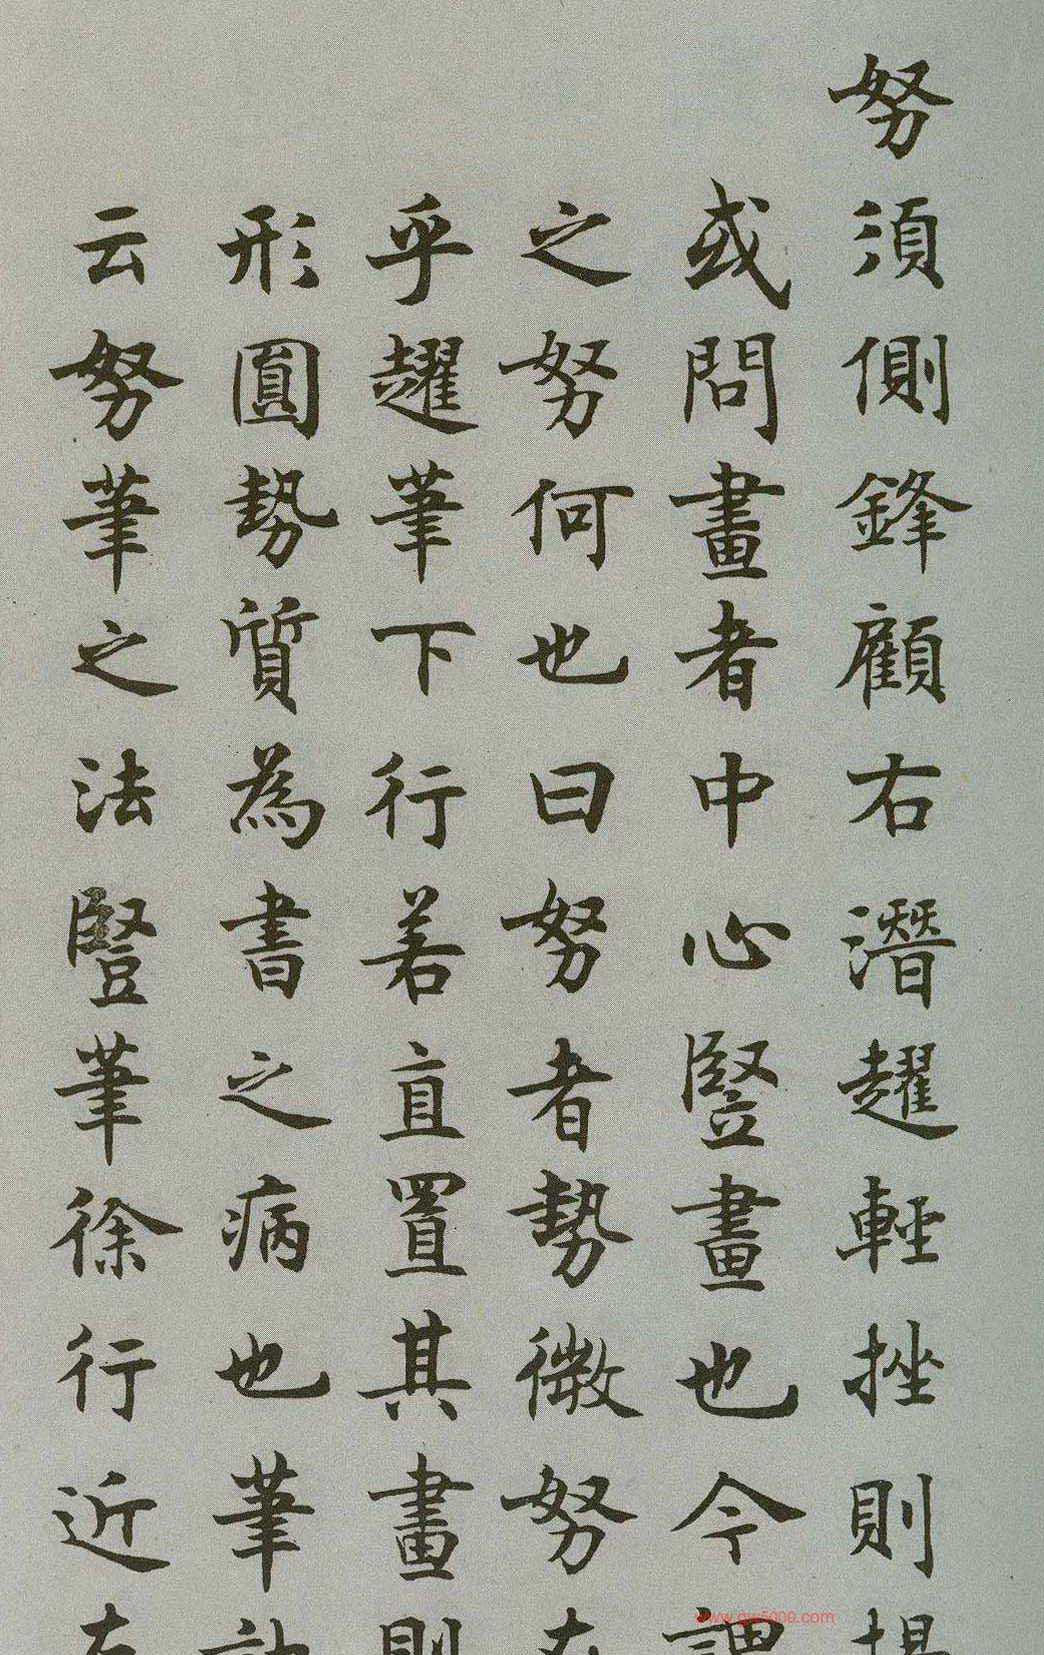 努須側鋒顧右潛趯輕挫則揭
或問畫者中心豎畫也今謂
之努何也曰努者勢微努在
乎趯筆下行若直置其畫則
形圓勢質為書之病也筆訣
云努筆之法豎筆徐行近左
www.gw5000.com